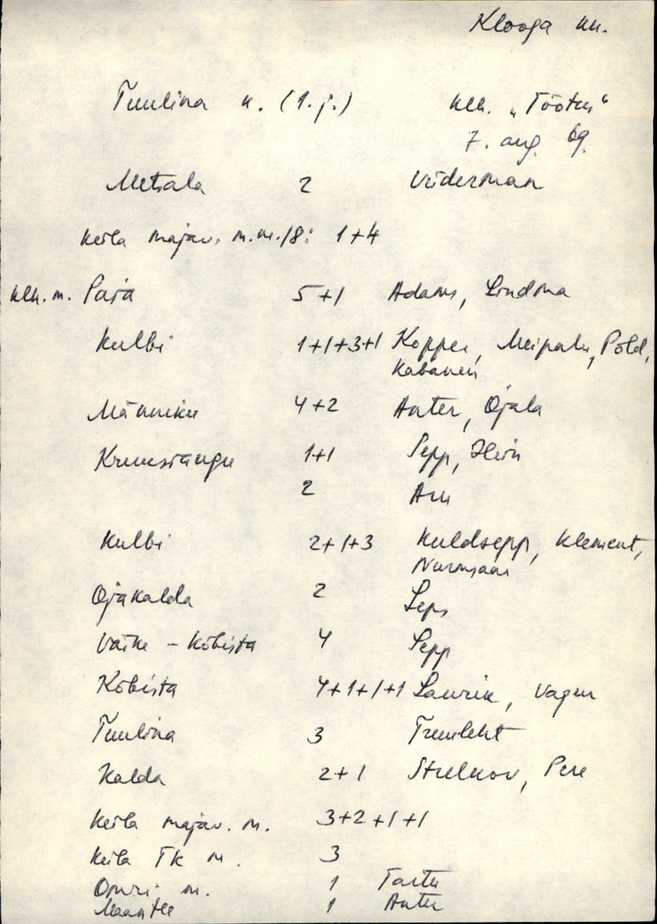 Klooga kn.
Tuulina k. (1. j.) klh. „Töötus“
7. aug. 69.
Metsala 2 Viiderman
Keila majav. m.m./8: 1+4
klh. m. Paja 5+1 Adams, Lindma
Kulbi 1+1+3+1 Koppel, Meipalu, Põld,
Kabanen
Männiku 4+2 Anter, Ojala
Kruusiaugu 1+1 Sepp, Hein
2 Aru
Kulbi 2+1+3 Kuldsepp, Klement,
Nurmsaar
Ojakalda 2 Leps
Väike-Kõbista 4 Sepp
Kõbista 4+1+1+1 Laurik, Vagur
Tuulina 3 Treuleht
Kalda 2+1 Strelkov, Pere
Keila majav. m. 3+2+1+1
Keila TK m. 3
m. 1 Tartu
Maantee 1 Anter